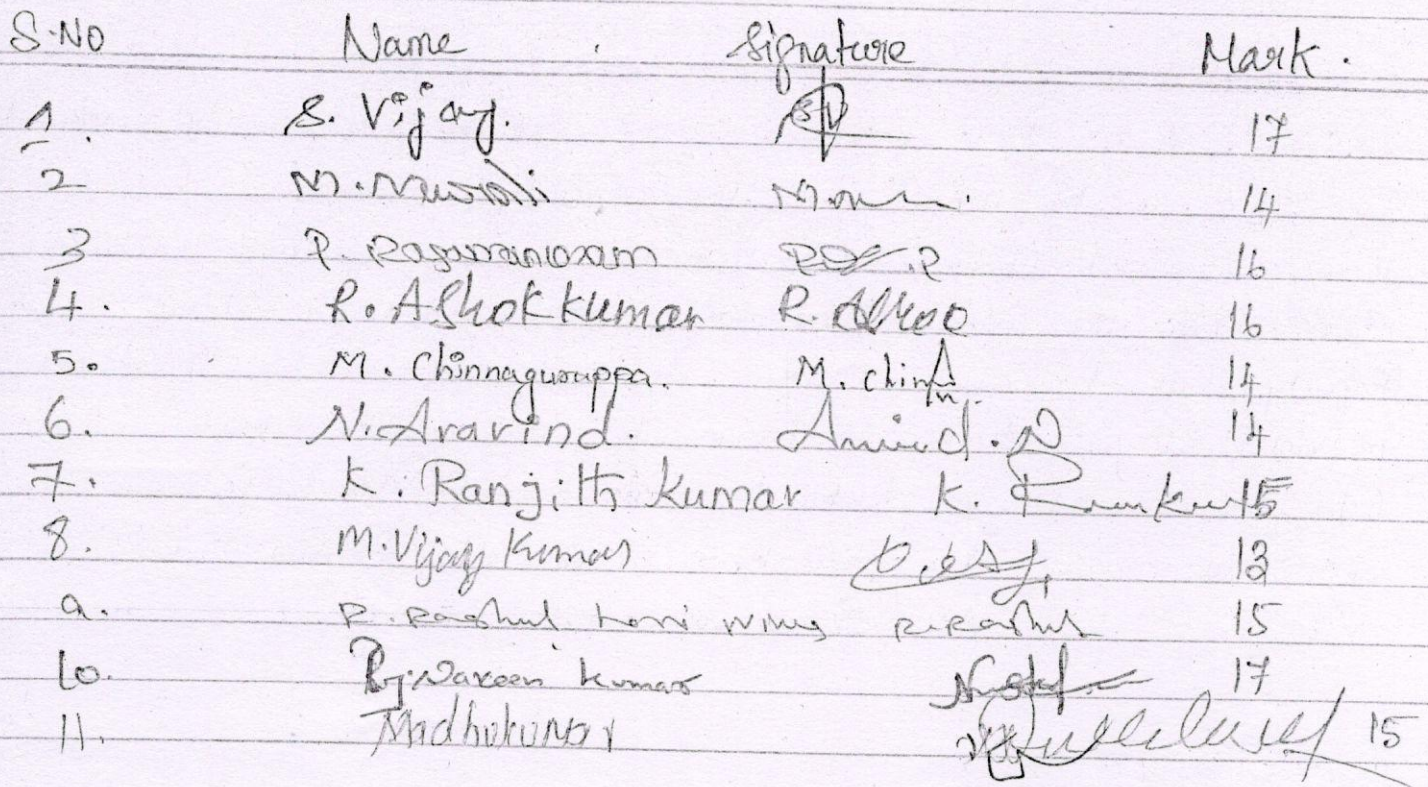 S.NO Name Signature Mark.
1. S. Vijay. SV 17
2 M. Murali 14
3 P. 16
4. R. Ashok kumar R. Ashoo 16
5. M. Chinnaguruppa. M. chinn 14
6. N. Aravind. Aravind. N 14
7. K. Ranjith Kumar K. 15
8. M. Vijay Kumar 13
9. R. Raghul R. Raghul 15
10. Naveen kumar 17
11. Madhukumar 15